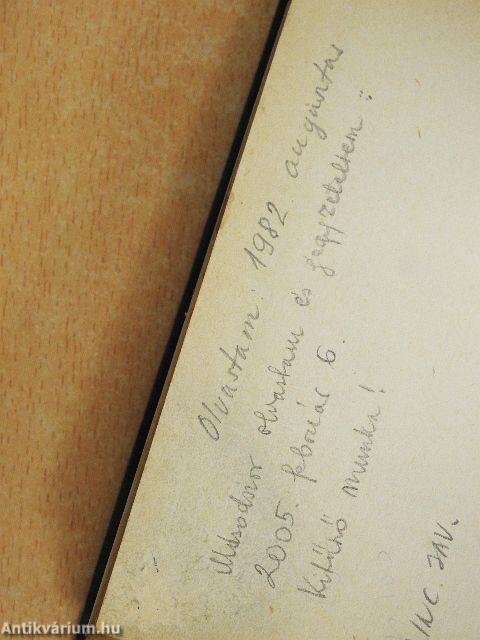 Olvastam: 1982. augusztus
Másodszor olvastam és jegyzeteltem:
2005. február 6.
Kitűnő munka!
INC. JAV.
Antikvárium.hu